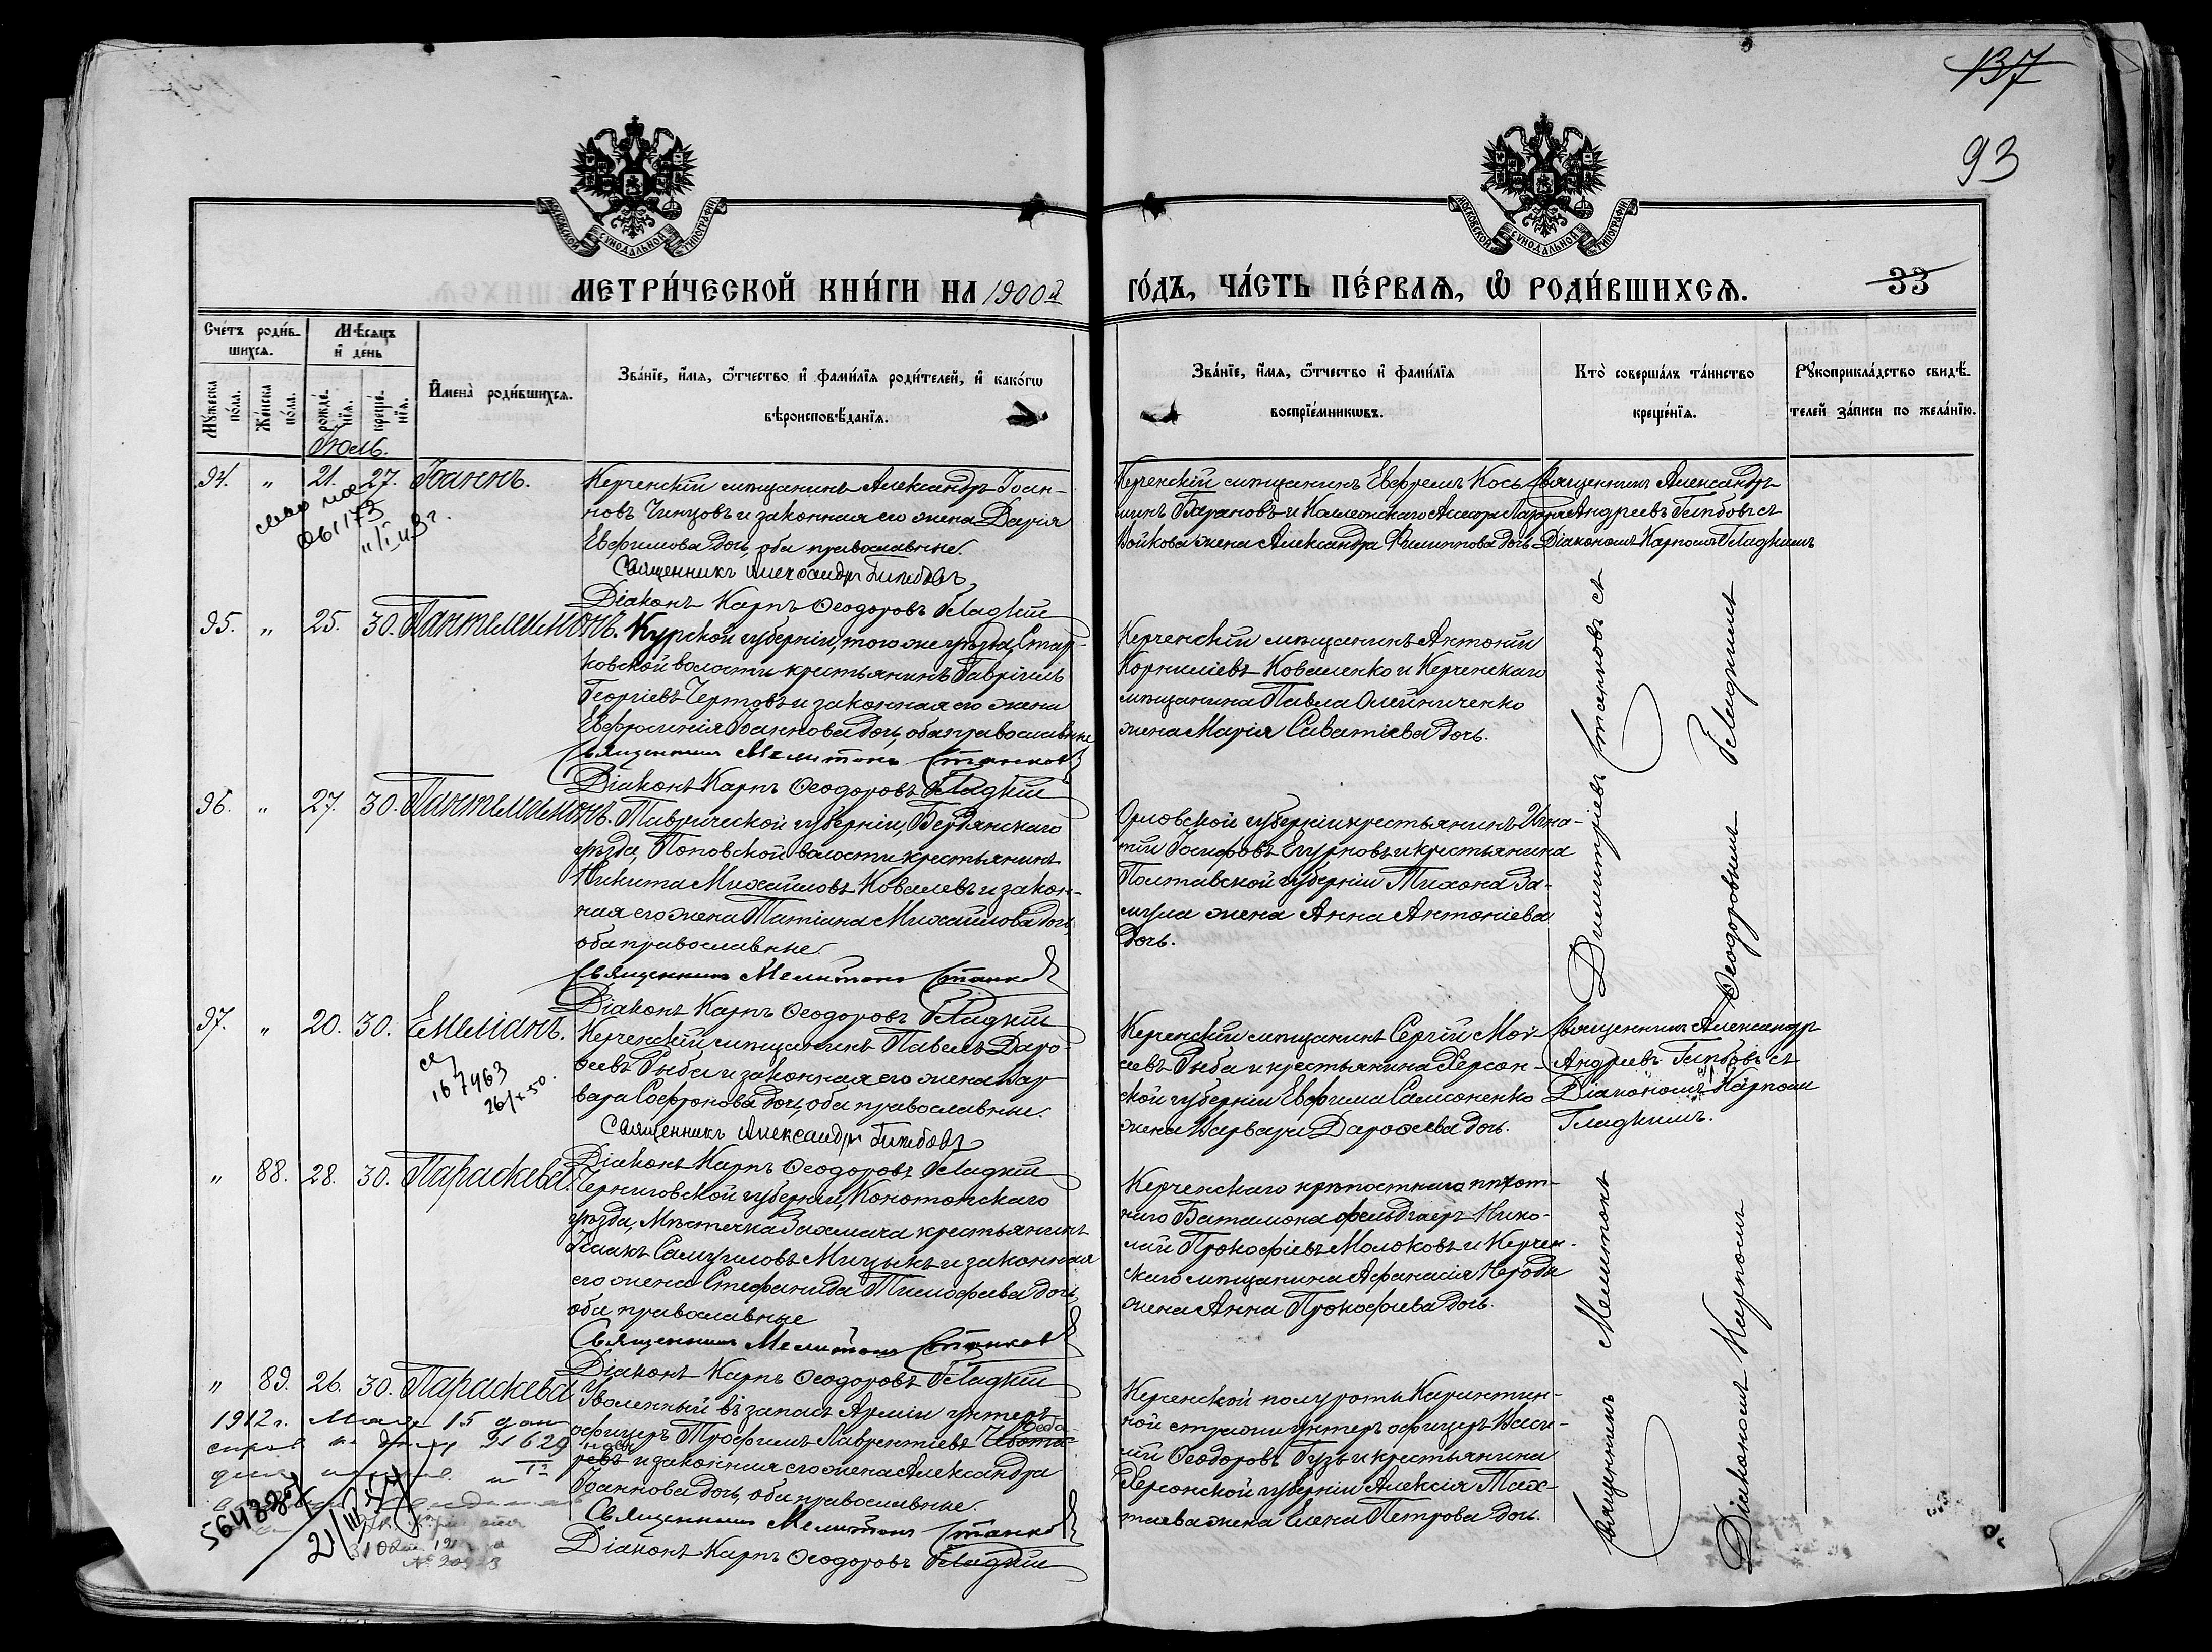 137
93
МОСКОВСКОЙ СѴНОДАЛЬНОЙ ТИПОГРАФІИ
МОСКОВСКОЙ СѴНОДАЛЬНОЙ ТИПОГРАФІИ
МЕТРИ́ЧЕСКОЙ КНИ́ГИ НА 1900й
ГО́ДЪ, ЧА́СТЬ ПЕ́РВАѦ, Ѡ РОДИ́ВШИХСѦ.
33
Сче́тъ роди́в-
шихсѧ.
Мѣсѧцъ
и҆ де́нь
Мꙋжеска по́ла.
Же́нска по́ла.
рожде́нїѧ.
креще́нїѧ.
И҆мена̀ роди́вшихсѧ.
Зва́нїе, и҆́мѧ, ѻ҆́тчество и҆ фами́лїѧ роди́телей, и҆ како́гѡ
вѣроисповѣ́данїѧ.
Зва́нїе, и҆́мѧ, ѻ҆́тчество и҆ фами́лїѧ
воспрїе́мникѡвъ.
Кто̀ соверша́лъ та́инство
креще́нїѧ.
Рꙋкоприкла́дство свидѣ́-
телей за́писи по жела́нїю.
Іюль.
94. " 21. 27. Іоаннъ.
Керченскій мѣщанинъ Александръ Іоан-
новъ Чинцовъ и законная его жена Дарія
Евфимова дочь, оба православные.
Священникъ Александръ Гипбовъ
Діаконъ Карпъ Ѳеодоровъ Гладкій
Керченскій мѣщанинъ Ефремъ Кось-
минъ Барановъ и Коллежскаго Ассесора
Войкова жена Александра Филиппова дочь
Священникъ Александръ
Андреевъ Гипбовъ съ
Діакономъ Карпомъ Гладкимъ
95. " 25. 30. Пантелеимонъ.
Курской губерніи, того же уѣзда, Стар-
ковской волости крестьянинъ Гавріилъ
Георгіевъ Чертовъ и законная его жена
Евфросинія Іоаннова дочь, оба православные
Священникъ Мелитонъ Станковъ
Діаконъ Карпъ Ѳеодоровъ Гладкій
Керченскій мѣщанинъ Антоній
Корниліевъ Коваленко и Керченскаго
мѣщанина Павла Олейниченко
жена Марія Саватіева дочь.
96. " 27. 30. Пантелеимонъ.
Таврической губерніи, Бердянскаго
уѣзда, Поповской волости крестьянинъ
Никита Михайловъ Ковалевъ и закон-
ная его жена Татіана Михайлова дочь,
оба православные.
Священникъ Мелитонъ Станковъ
Діаконъ Карпъ Ѳеодоровъ Гладкій
Орловской губерніи крестьянинъ Игна-
тій Іосифовъ Егурновъ и крестьянина
Полтавской губерніи Тихона За-
мула жена Анна Антоніева
дочь.
Димитріевъ Станковъ съ
Ѳеодоровымъ Гладкимъ
97. " 20. 30. Емеліанъ.
167463
Керченскій мѣщанинъ Павелъ Даро-
ѳеевъ Рыба и законная его жена Вар-
вара Софронова дочь, оба православные.
Священникъ Александръ Гипбовъ
Діаконъ Карпъ Ѳеодоровъ Гладкій
Керченскій мѣщанинъ Сергій Мои-
сеевъ Рыба и крестьянина Херсон-
ской губерніи Евфима Самоненко
жена Варвара Дароѳеева дочь.
Священникъ Александръ
Андреевъ Гипбовъ съ
Діакономъ Карпомъ
Гладкимъ.
" 88. 28. 30. Параскева.
Черниговской губерніи, Конотопскаго
уѣзда, Мѣстечка Бахмача крестьянинъ
Исаакъ Самуиловъ Мицыкъ и законная
его жена Стефанида Тимофеева дочь,
оба православные
Священникъ Мелитонъ Станковъ
Діаконъ Карпъ Ѳеодоровъ Гладкій
Керченскаго крѣпостнаго пѣхот-
наго Баталіона фельдшеръ Нико-
лай Прокофіевъ Молоковъ и Керчен-
скаго мѣщанина Афанасія Нерода
жена Анна Прокофіева дочь.
" 89. 26. 30. Параскева
Уволенный въ запасъ Арміи унтеръ-
офицеръ Трофимъ Лаврентіевъ
и законная его жена Александра
Іоаннова дочь, оба православные.
Священникъ Мелитонъ Станковъ
Діаконъ Карпъ Ѳеодоровъ Гладкій
Керченской полуроты Карантин-
ной стражи унтеръ офицеръ Васи-
лій Ѳеодоровъ Гузь и крестьянина
Херсонской губерніи Алексія Тах-
таева жена Елена Петрова дочь.
Священникъ Мелитонъ
Діакономъ Карпомъ
1912 г. Мая 15
№ 629
21/III